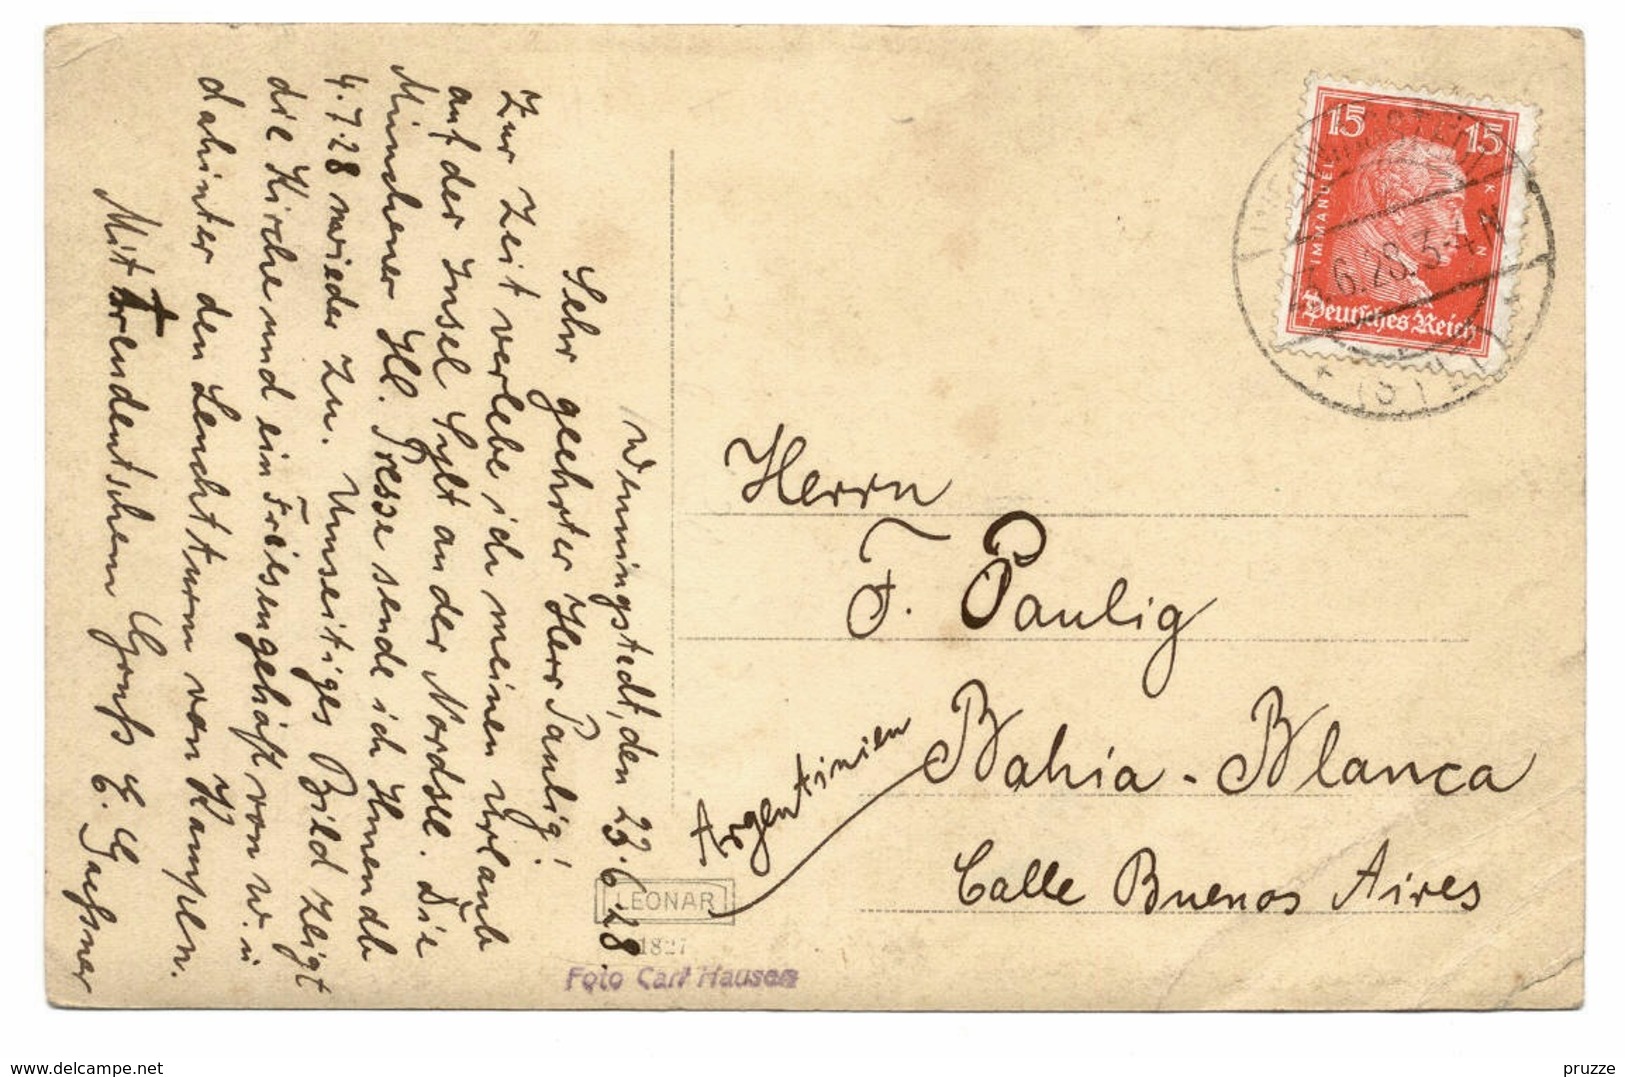 Wenningstedt, den 23.6.28.
Sehr geehrter Herr Paulig!
Zur Zeit verlebe ich meinen Urlaub
auf der Insel Sylt an der Nordsee. Die
Münchener Ill. Presse sende ich Ihnen ab
4.7.28 wieder zu. Umseitiges Bild zeigt
die Kirche und ein Friesengehöft von W. u
dahinter den Leuchtturm von Kampen.
Mit treudeutschem Gruß E. Gaeßner
Herrn
F. Paulig
Bahia-Blanca
Argentinien
Calle Buenos Aires
15 15
IMMANUEL K N
Deutsches Reich
6.28.3-4N
* (S *
LEONAR
1827
Foto Carl Hausen
www.delcampe.net
pruzze